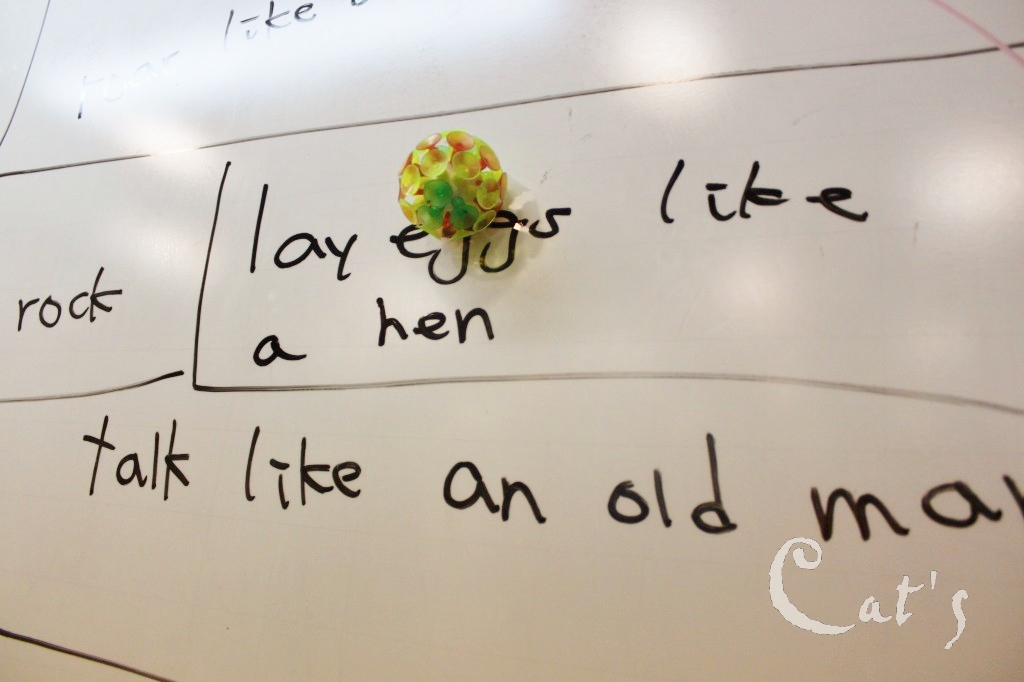 roar like
lay eggs like
a hen
rock
talk like an old
Cat's